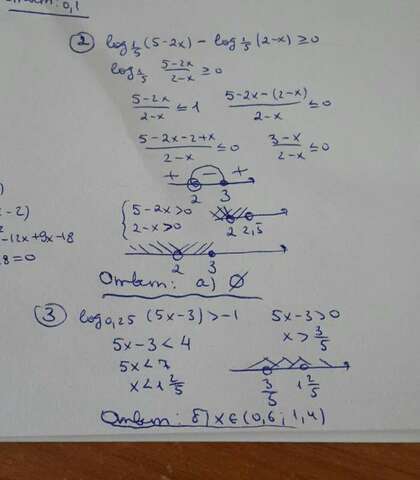 Ответ: 0,1
② log_{1/5} (5-2x) - log_{1/5} (2-x) ≥ 0
log_{1/5} (5-2x)/(2-x) ≥ 0
(5-2x)/(2-x) ≤ 1 (5-2x-(2-x))/(2-x) ≤ 0
(5-2x-2+x)/(2-x) ≤ 0 (3-x)/(2-x) ≤ 0
+ - +
2 3
{ 5-2x>0
2-x>0
2 2,5
2 3
Ответ: а) ∅
-12x+9x+18
8=0
③ log_{0,25} (5x-3) > -1 5x-3>0
5x-3 < 4 x > 3/5
5x < 7
x < 1 2/5
3/5 1 2/5
Ответ: б) x∈(0,6; 1,4)